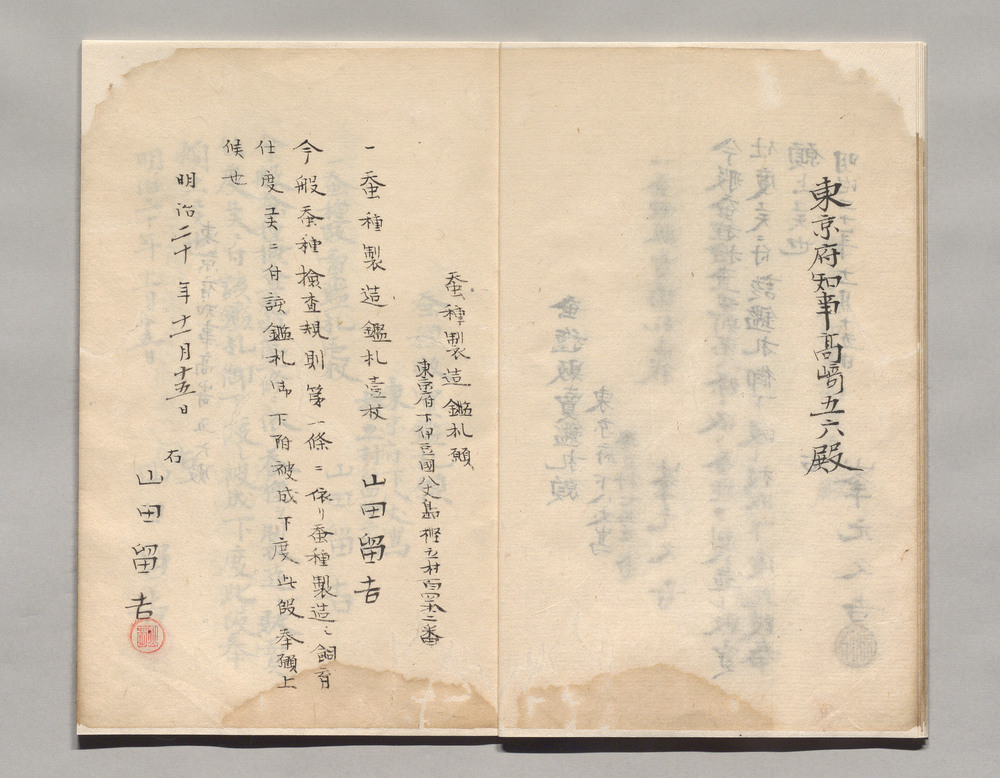 東京府知事髙﨑五六殿
蚕種製造鑑札願
東京府下伊豆國八丈島樫立村百
番
山田留吉
一蚕種製造鑑札壹枚
今般蚕種検査規則第一條ニ依リ蚕種製造ニ飼育
仕度候ニ付該鑑札御下附被成下度此段奉願上
候也
明治二十年十一月十五日
右
山田留吉